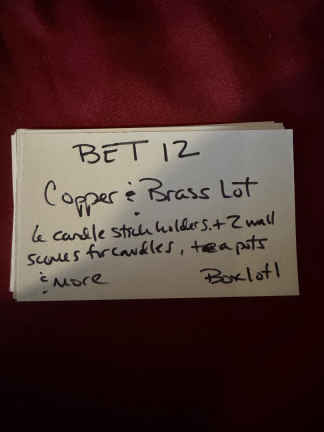 BET 12
Copper & Brass Lot
6 candle stick holders, + 2 wall
scones for candles, tea pots
& more Box lot 1